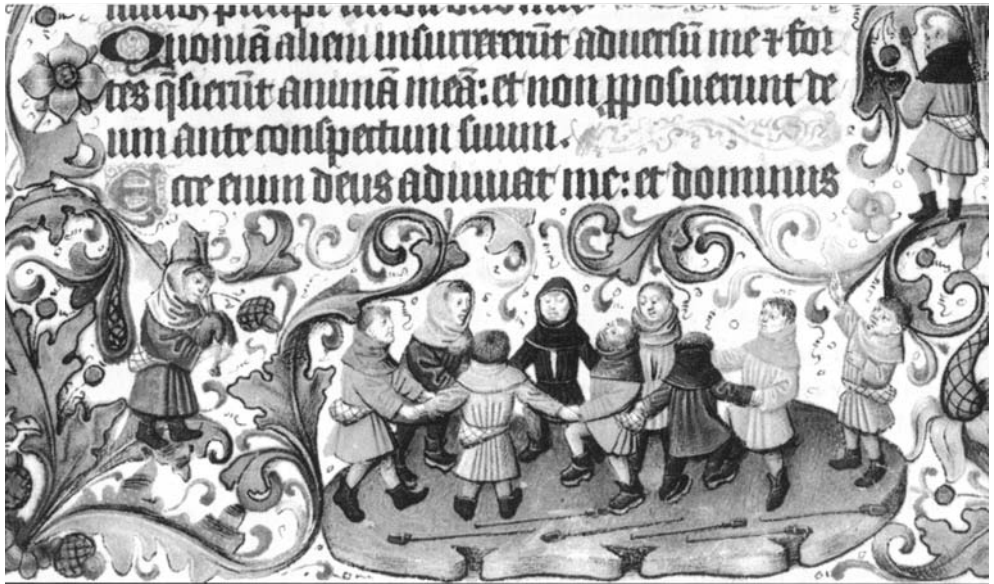 Quoniā alieni insurrexerūt aduersū me ⁊ for
tes q̄sierūt animā meā: et non ꝓposuerunt de
um ante conspectum suum.
Ecce enim deus adiuuat me: et dominus